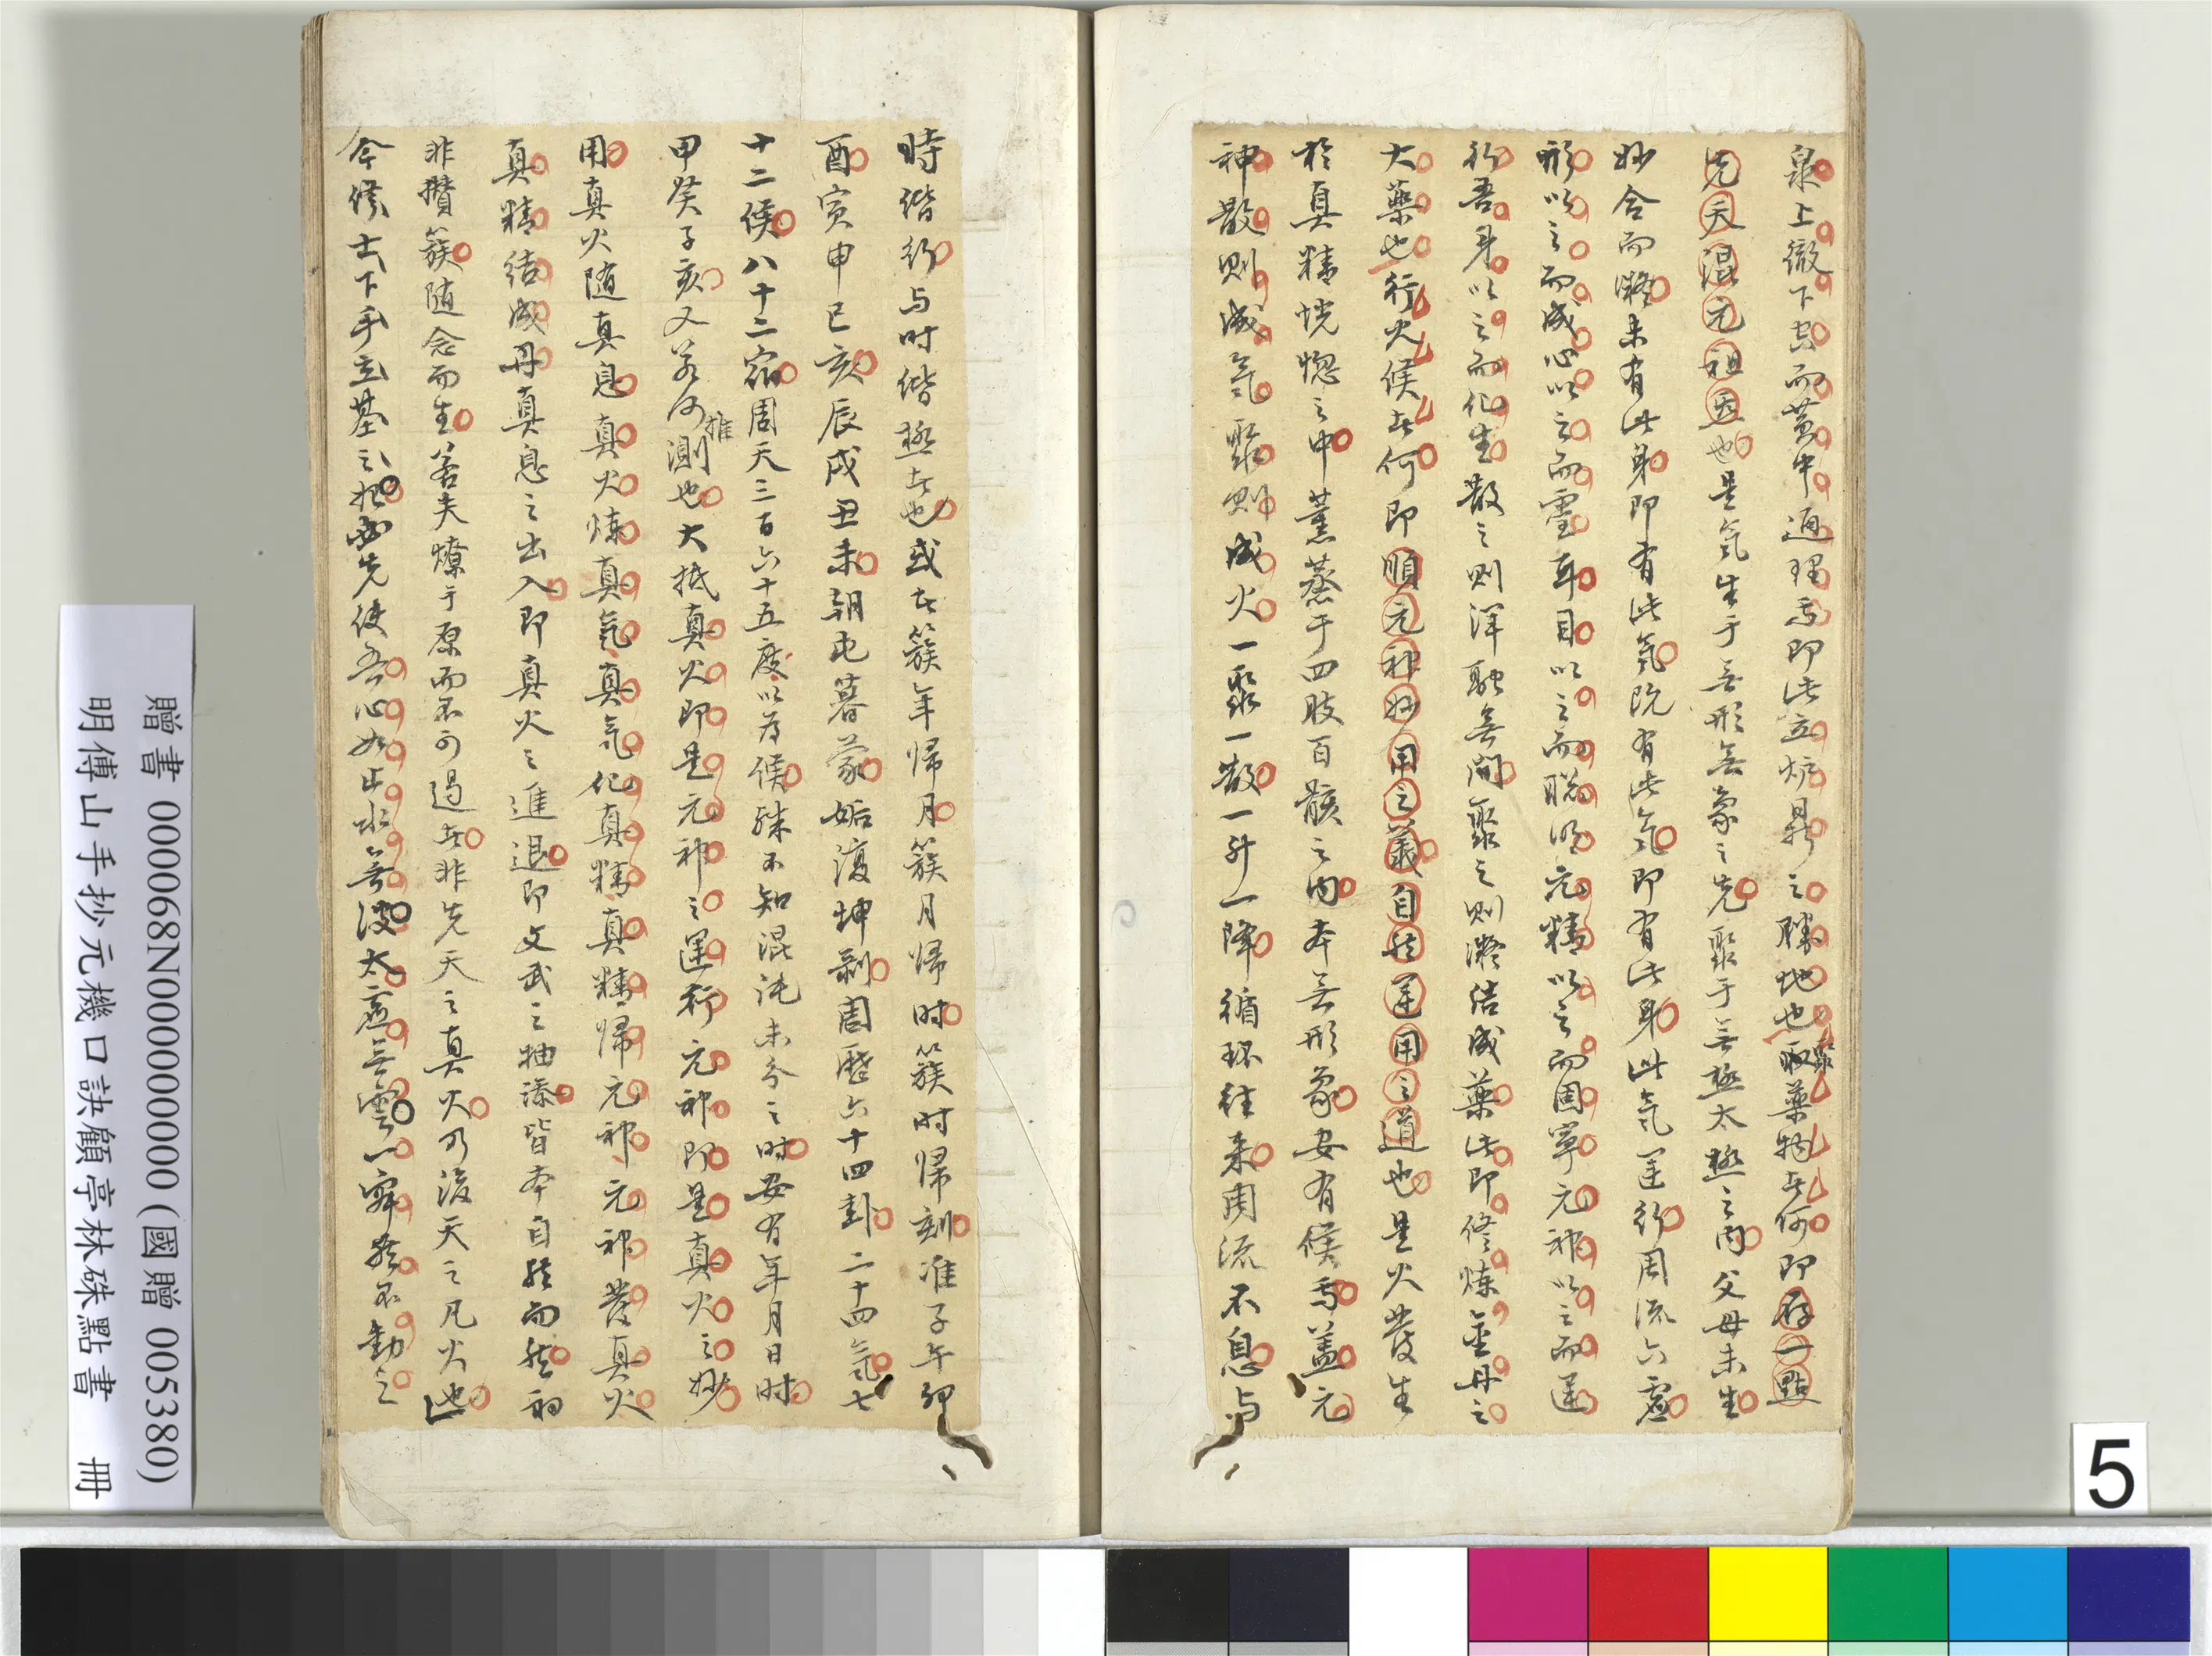 泉上徹下空而黃中通理焉即此立爐鼎之勝地也聚藥物者何即存一點
先天混元祖炁也是氣生于無形無象之先聚于無極太極之內父母未生
妙合而凝未有此身即有此氣既有此氣即有此身此氣運行周流六虛
形以之而成心以之而靈耳目以之而聰明元精以之而固寧元神以之而運
行吾身以之而化生散之則渾融無間聚之則凝結成藥此即修煉金丹之
大藥也行火候者何即順元神妙用之義自然運用之道也是火發生
於真精恍惚之中薰蒸于四肢百骸之內本無形象安有候焉蓋元
神散則成氣聚則成火一聚一散一升一降循環往來周流不息与
時偕行与时偕極者也或者簇年歸月簇月歸时簇时歸刻准子午卯
酉寅申巳亥辰戌丑未朝屯暮蒙姤復坤剝周歷六十四卦二十四氣七
十二候八十二宿周天三百六十五度以為候殊不知混沌未分之时安有年月日时
甲癸子亥又若何推測也大抵真火即是元神之運行元神即是真火之妙
用真火随真息真火煉真氣真氣化真精真精歸元神元神發真火
真精結成丹真息之出入即真火之進退即文武之抽添皆本自然而然初
非攢簇随念而生若夫燎于原而不可遏者非先天之真火乃後天之凡火也
今修士下手立基之初必先使吾心如止水無波太虛無雲一寂然不動之
贈書 000068N000000000 (國贈 005380)
明傅山手抄元機口訣顧亭林硃點書 冊
5